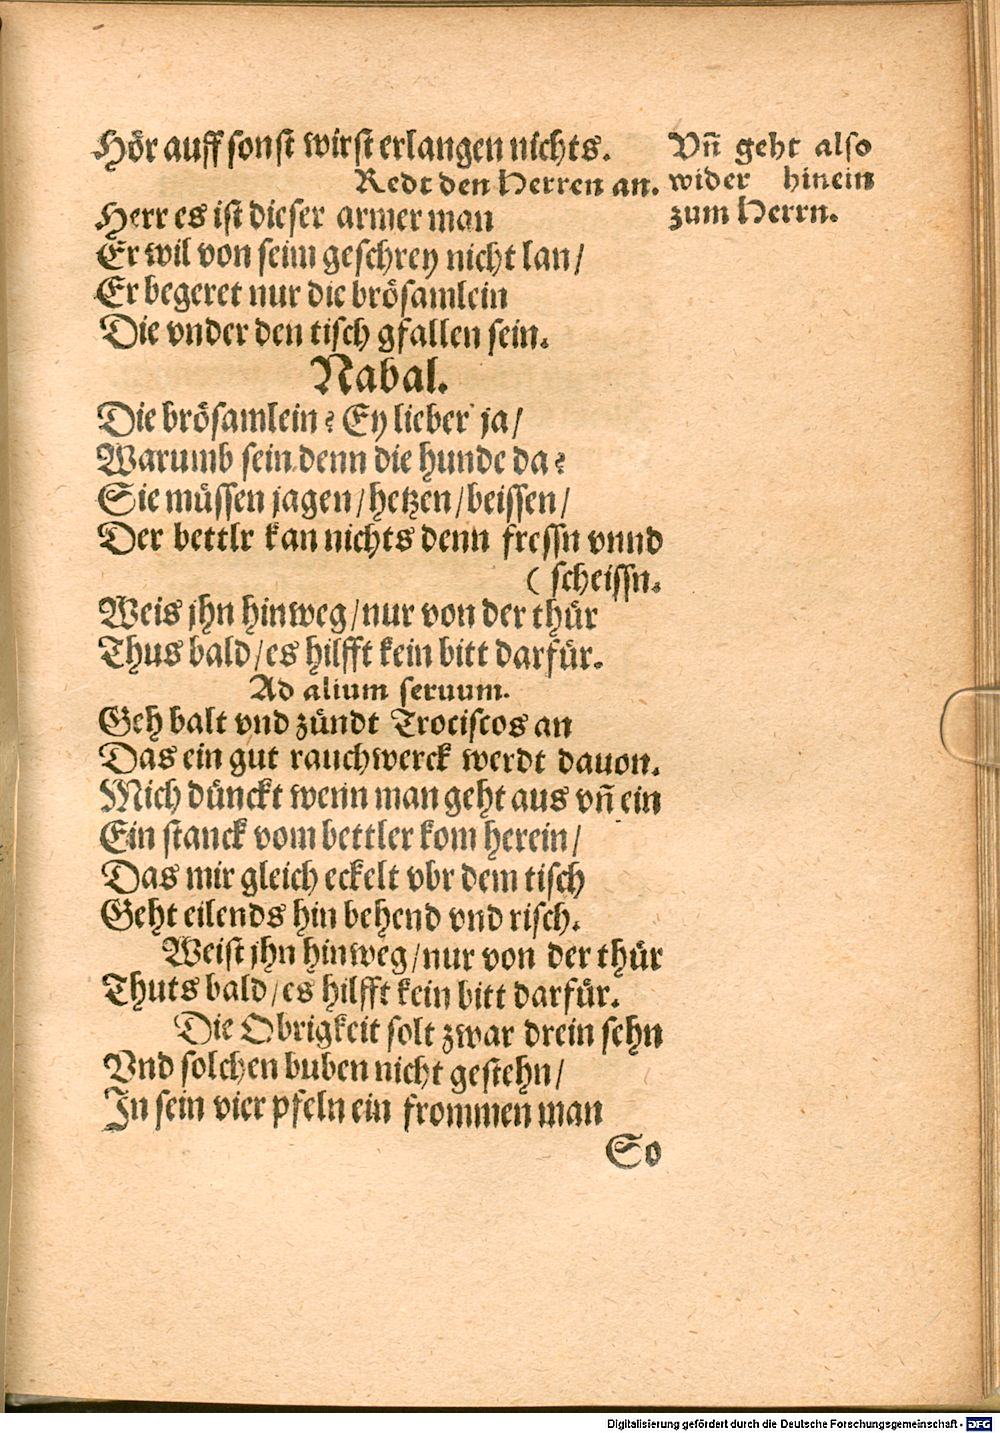 Hör auff sonst wirst erlangen nichts.
Redt den Herren an.
Vn̄ geht also
wider hinein
zum Herrn.
Herr es ist dieser armer man
Er wil von seim geschrey nicht lan/
Er begeret nur die brösamlein
Die vnder den tisch gfallen sein.
Nabal.
Die brösamlein? Ey lieber ja/
Warumb sein denn die hunde da?
Sie müssen jagen/hetzen/beissen/
Der bettlr kan nichts denn fressn vnnd
( scheissn.
Weis jhn hinweg/nur von der thür
Thus bald/es hilfft kein bitt darfür.
Ad alium seruum.
Geh balt vnd zündt Trociscos an
Das ein gut rauchwerck werdt dauon.
Mich dünckt wenn man geht aus vn̄ ein
Ein stanck vom bettler kom herein/
Das mir gleich eckelt vbr dem tisch
Geht eilends hin behend vnd risch.
Weist jhn hinweg/nur von der thür
Thuts bald/es hilfft kein bitt darfür.
Die Obrigkeit solt zwar drein sehn
Vnd solchen buben nicht gestehn/
In sein vier pfeln ein frommen man
So
Digitalisierung gefördert durch die Deutsche Forschungsgemeinschaft - DFG